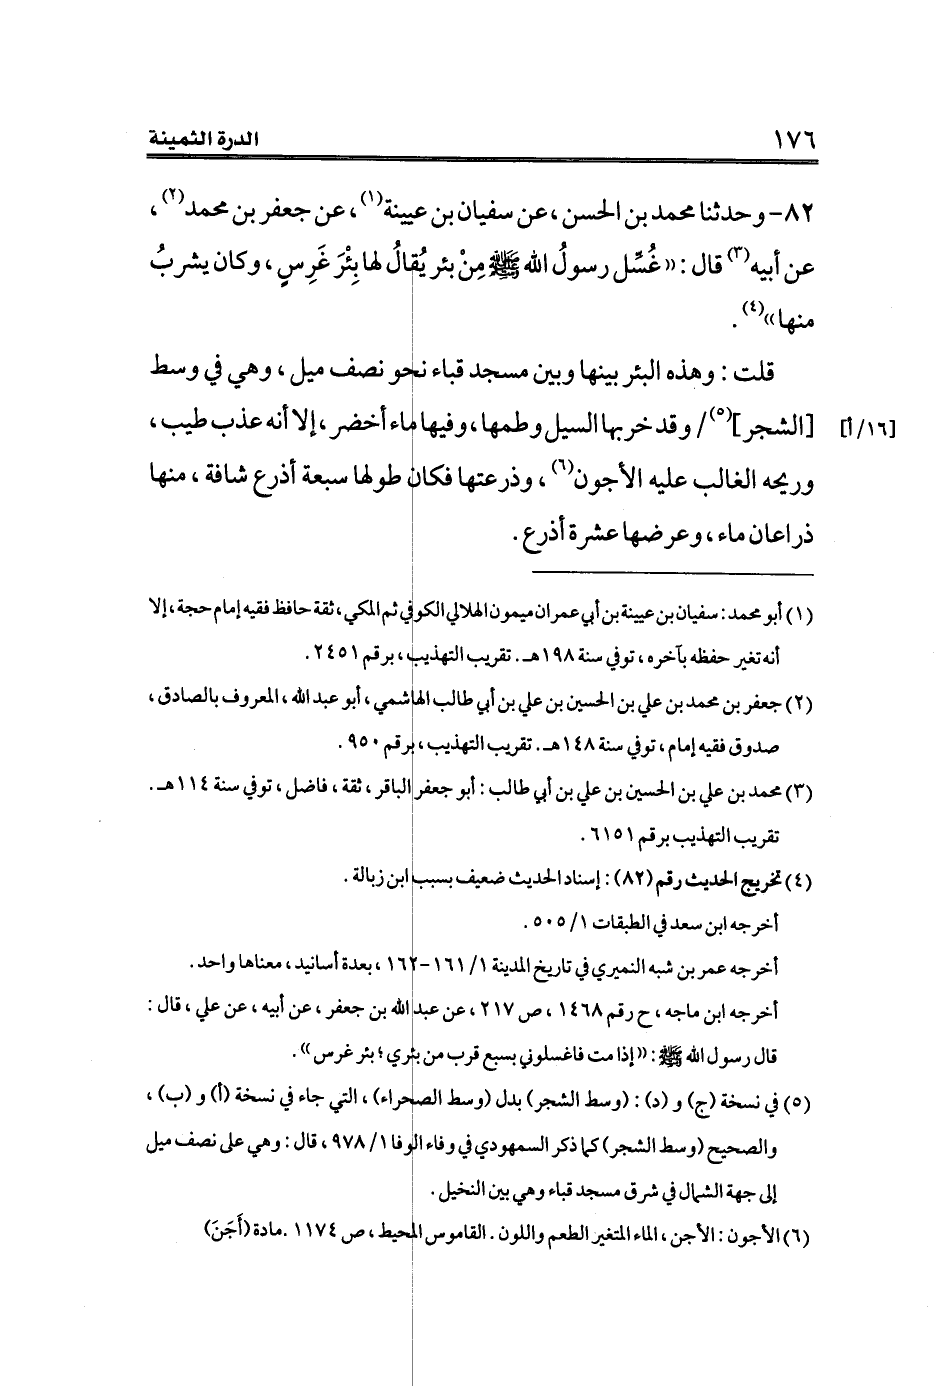 ١٧٦ الدرة الثمينة
٨٢- وحدثنا محمد بن الحسن ، عن سفيان بن عيينة(١) ، عن جعفر بن محمد(٢) ،
عن أبيه(٣) قال : «غُسِّل رسولُ الله ﷺ مِنْ بئر يُقالُ لها بِئْرَ غَرِسٍ ، وكان يشربُ
منها»(٤) .
قلت : وهذه البئر بينها وبين مسجد قباء نحو نصف ميل ، وهي في وسط
[١٦/أ] [الشجر](٥)/ وقد خربها السيل وطمها ، وفيها ماء أخضر ، إلا أنه عذب طيب ،
وريحه الغالب عليه الأجون(٦) ، وذرعتها فكان طولها سبعة أذرع شافة ، منها
ذراعان ماء ، وعرضها عشرة أذرع .
(١) أبو محمد : سفيان بن عيينة بن أبي عمران ميمون الهلالي الكوفي ثم المكي ، ثقة حافظ فقيه إمام حجة ، إلا
أنه تغير حفظه بآخره ، توفي سنة ١٩٨هـ . تقريب التهذيب ، برقم ٢٤٥١ .
(٢) جعفر بن محمد بن علي بن الحسين بن علي بن أبي طالب الهاشمي ، أبو عبد الله ، المعروف بالصادق ،
صدوق فقيه إمام ، توفي سنة ١٤٨هـ . تقريب التهذيب ، برقم ٩٥٠ .
(٣) محمد بن علي بن الحسين بن علي بن أبي طالب : أبو جعفر الباقر ، ثقة ، فاضل ، توفي سنة ١١٤هـ .
تقريب التهذيب برقم ٦١٥١ .
(٤) تخريج الحديث رقم (٨٢) : إسناد الحديث ضعيف بسبب ابن زبالة .
أخرجه ابن سعد في الطبقات ١/ ٥٠٥ .
أخرجه عمر بن شبه النميري في تاريخ المدينة ١/ ١٦١-١٦٢ ، بعدة أسانيد ، معناها واحد .
أخرجه ابن ماجه ، ح رقم ١٤٦٨ ، ص ٢١٧ ، عن عبد الله بن جعفر ، عن أبيه ، عن علي ، قال :
قال رسول الله ﷺ : «إذا مت فاغسلوني بسبع قرب من بئري ؛ بئر غرس» .
(٥) في نسخة (ج) و (د) : (وسط الشجر) بدل (وسط الصحراء) ، التي جاء في نسخة (أ) و (ب) ،
والصحيح (وسط الشجر) كما ذكر السمهودي في وفاء الوفا ١/ ٩٧٨ ، قال : وهي على نصف ميل
إلى جهة الشمال في شرق مسجد قباء وهي بين النخيل .
(٦) الأجون : الأجن ، الماء المتغير الطعم واللون . القاموس المحيط ، ص ١١٧٤ . مادة (أَجَنَ)